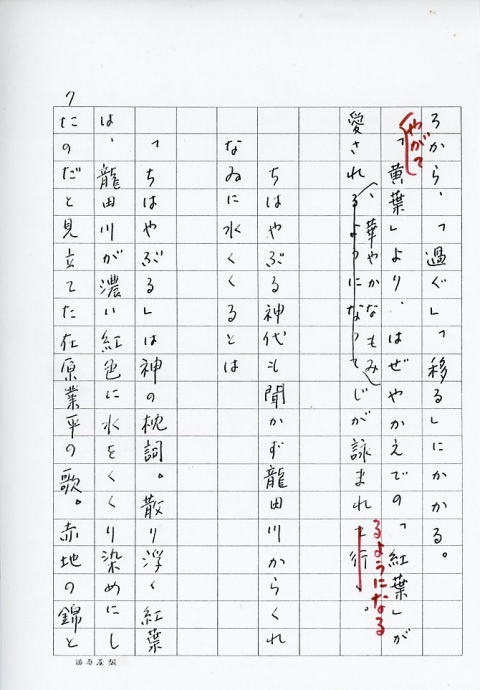 7
ろから、「過ぐ」「移る」にかかる。
やがて
「黄葉」より、はぜやかえでの「紅葉」が
、華やかなもみ
愛されるようになってじが詠まれて行く。
るようになる
ちはやぶる神代も聞かず龍田川からくれ
なゐに水くくるとは
「ちはやぶる」は神の枕詞。散り浮く紅葉
は、龍田川が濃い紅色に水をくくり染めにし
たのだと見立てた在原業平の歌。赤地の錦と